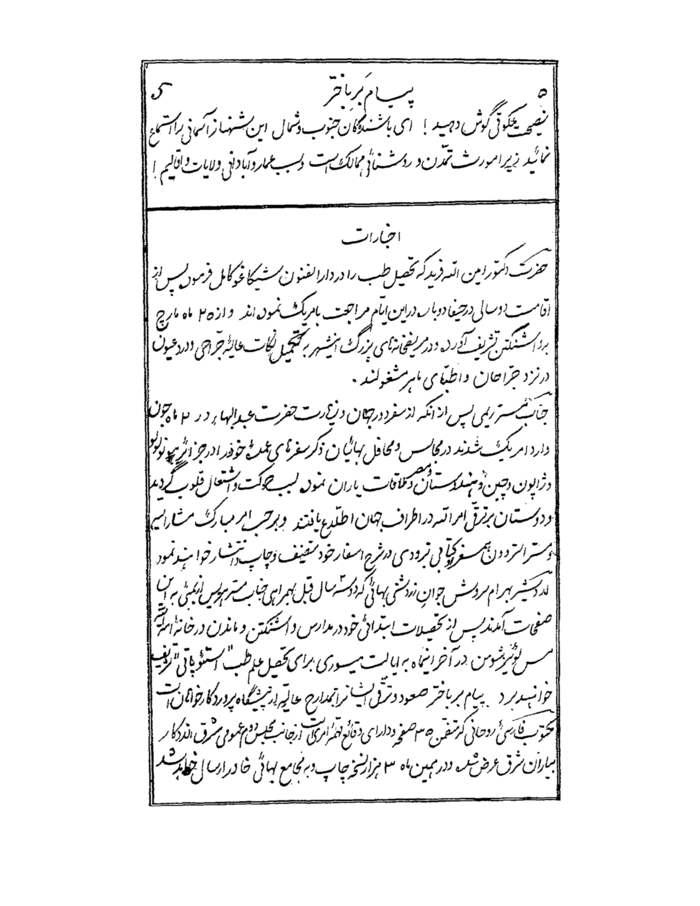 ۵ پیام بر باختر 5
نصیحت نیکوئی گوش دهید ! ای باشندگان جنوب و شمال این را استماع
نمائید زیرا مورث تمدن و روشنائی ممالک است و سبب عمار و آبادانی ولایات و اقالیم !
اخبارات
حضرت دکتور امین الله فرید که تحصیل طب را در دار الفنون شیکاغو کامل فرمود پس از
اقامت دو سالی در حیفا دوباره در این ایام مراجعت بامریک نمودند و از ۲۵ ماه مارچ
بواشنگتن تشریف آورده و در مریضخانه‌های بزرگ اینشهر به تکمیل نکات عالیهٔ جراحی و درد عیون
در نزد جراحان و اطبای ماهر مشغولند .
جناب مستر ریمی پس از آنکه از سفر دور جهان و زیارت حضرت عبد البهاء در ۲ ماه جون
وارد امریک شدند در مجالس و محافل بهائیان ذکر سفرهای عمدهٔ خود را در جزائر هونولولو
و ژاپون و چین و هندوستان و ملاقات یاران نمود سبب حرکت و اشتعال قلوب گردید
و دوستان بر ترقی امر الله در اطراف جهان اطلاع یافتند و بر حسب امر مبارک مشارالیه
و ستر کتابی بزودی در شرح اسفار خود تصنیف و چاپ و انتشار خواهند نمود
اردشیر بهرام سروش جوان زردشتی بهائی که دو سه سال قبل بهمراهی جناب مستر به این
صفحات آمدند پس از تحصیلات ابتدائی خود در مدارس واشنگتن و ماندن در خانهٔ
مس در آخر اینماه به ایالت میسوری برای تحصیل علم طب "استئوپاتی" تشریف
خواهند برد پیام بر باختر صعود و ترقی ایشانرا بمدارج عالیه از پیشگاه پروردگار خواهان است
مکتوب فارسی روحانی که متضمن ۳۵ صفحه و دارای وقایع مهمهٔ امری است از جانب مجلس عمومی مشرق الاذکار
بیاران شرق عرض شده و در همین ماه ۳ هزار نسخه چاپ و به مجامع بهائی خاور ارسال خواهد شد